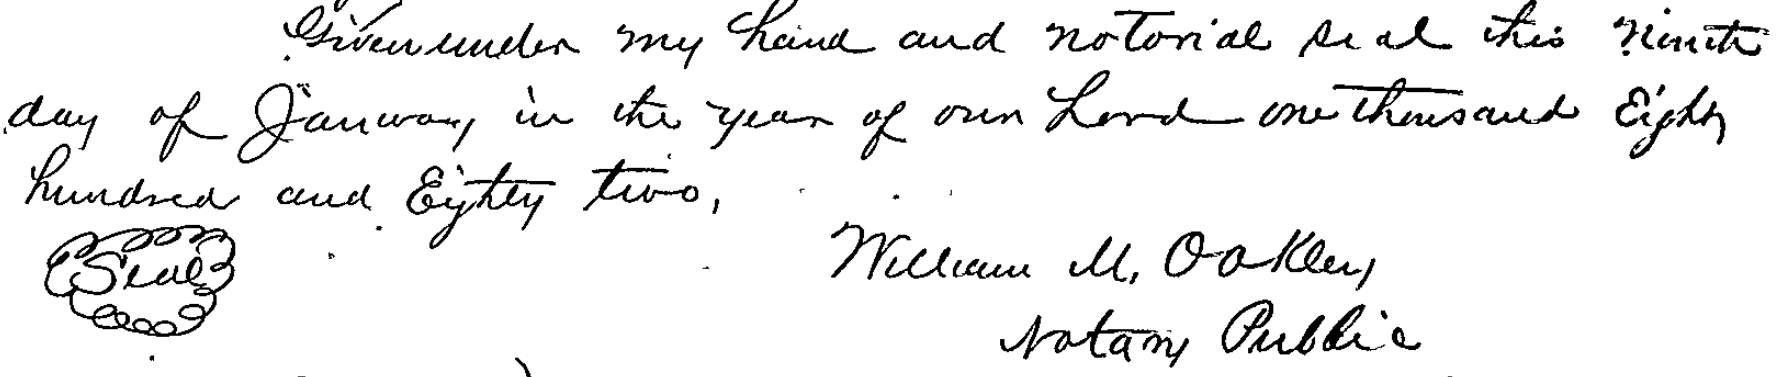 Given under my hand and notorial seal this Nineth
day of January in the year of our Lord one thousand Eighty
hundred and Eighty two,
Seal
William M. Oakley
Notary Public